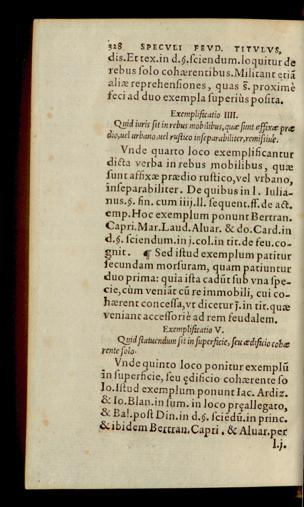 328 SPECVLI FEVD. TITVLVS,
dis. Et tex. in d. §. sciendum. loquitur de
rebus solo cohærentibus. Militant etiā
aliæ reprehensiones, quas s̄. proximè
feci ad duo exempla superius posita.
Exemplificatio IIII.
Quid iuris sit in rebus mobilibus, quæ sunt affixæ præ
dio, vel urbano, vel rustico inseparabiliter, remissiuè.
Vnde quarto loco exemplificantur
dicta verba in rebus mobilibus, quæ
sunt affixæ prædio rustico, vel vrbano,
inseparabiliter. De quibus in l. Iulia-
nus. §. fin. cum iiij. ll. sequent. ff. de act.
emp. Hoc exemplum ponunt Bertran.
Capri. Mar. Laud. Aluar. & do. Card. in
d. §. sciendum. in j. col. in tit. de feu. co-
gnit. ¶ Sed istud exemplum patitur
secundam morsuram, quam patiuntur
duo prima: quia ista cadūt sub vna spe-
cie, cùm veniāt cū re immobili, cui co-
hærent concessa, vt dicetur j̄. in tit. quæ
veniant accessoriè ad rem feudalem.
Exemplificatio V.
Quid statuendum sit in superficie, seu ædificio cohæ
rente solo.
Vnde quinto loco ponitur exemplū
in superficie, seu ędificio cohærente so
lo. Istud exemplum ponunt Iac. Ardiz.
& Io. Blan. in sum. in loco pręallegato,
& Bal. post Din. in d. §. sciēdū. in princ.
& ibidem Bertran. Capri. & Aluar. per
l. j.